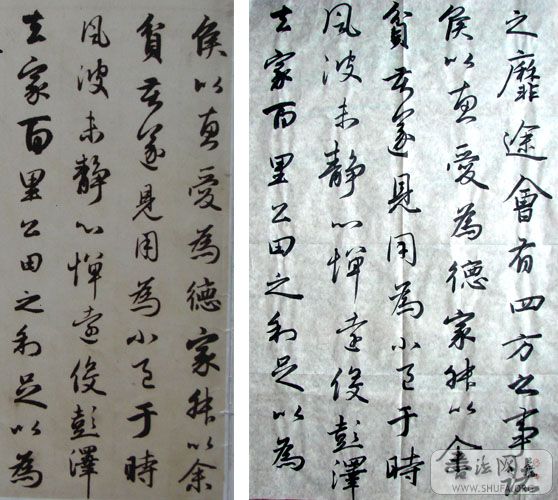 侯以惠愛為德家叔以余
貧苦遂見用為小邑于時
風波未靜心憚遠役彭澤
去家百里公田之利足以為
之靡途會有四方之事諸
侯以惠愛為德家叔以余
貧苦遂見用為小邑于時
風波未靜心憚遠役彭澤
去家百里公田之利足以為
書法网
WWW.SHUFA.ORG